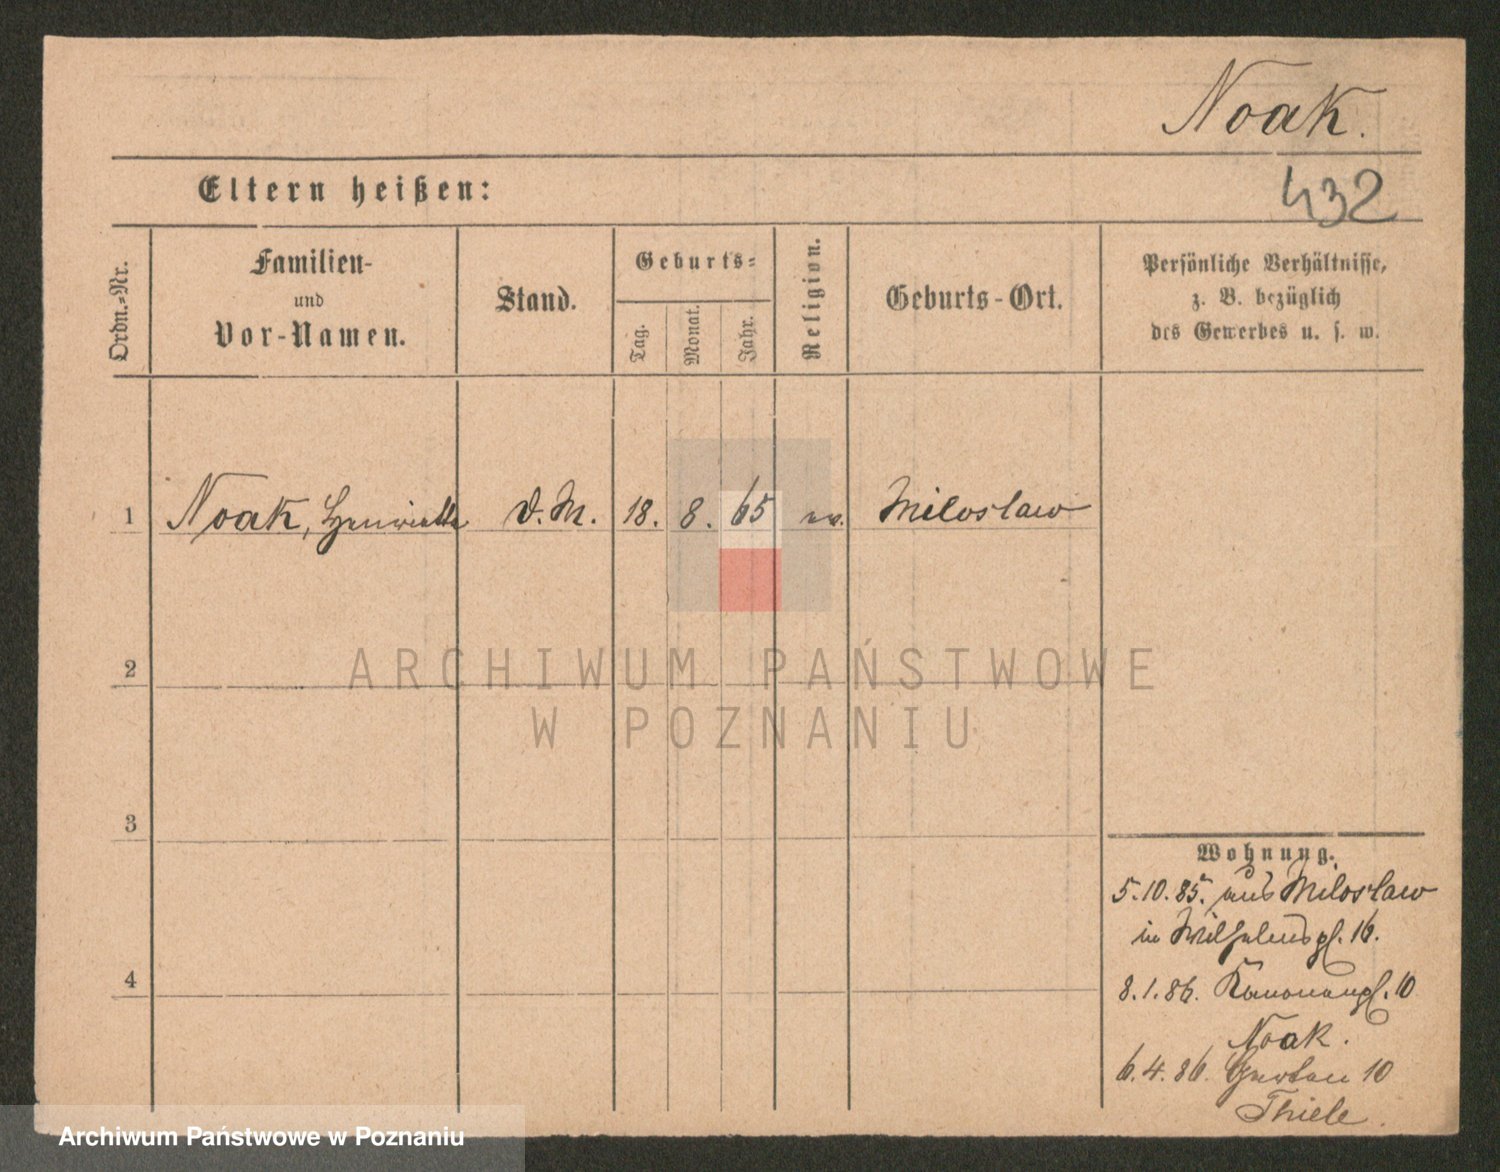 Noak.
432
Eltern heißen:
Ordn.-Nr.
Familien-
und
Vor-Namen.
Stand.
Geburts-
Tag.
Monat.
Jahr.
Religion.
Geburts-Ort.
Persönliche Verhältnisse,
z. B. bezüglich
des Gewerbes u. s. w.
1 Noak, Henriette D. M. 18. 8. 65 ev. Miloslaw
2
3
4
Wohnung.
5.10.85. aus Miloslaw
in Wilhelmspl. 16.
8.1.86. Kanonenpl. 10
Noak.
6.4.86. Garten 10
Thiele.
ARCHIWUM PAŃSTWOWE
W POZNANIU
Archiwum Państwowe w Poznaniu